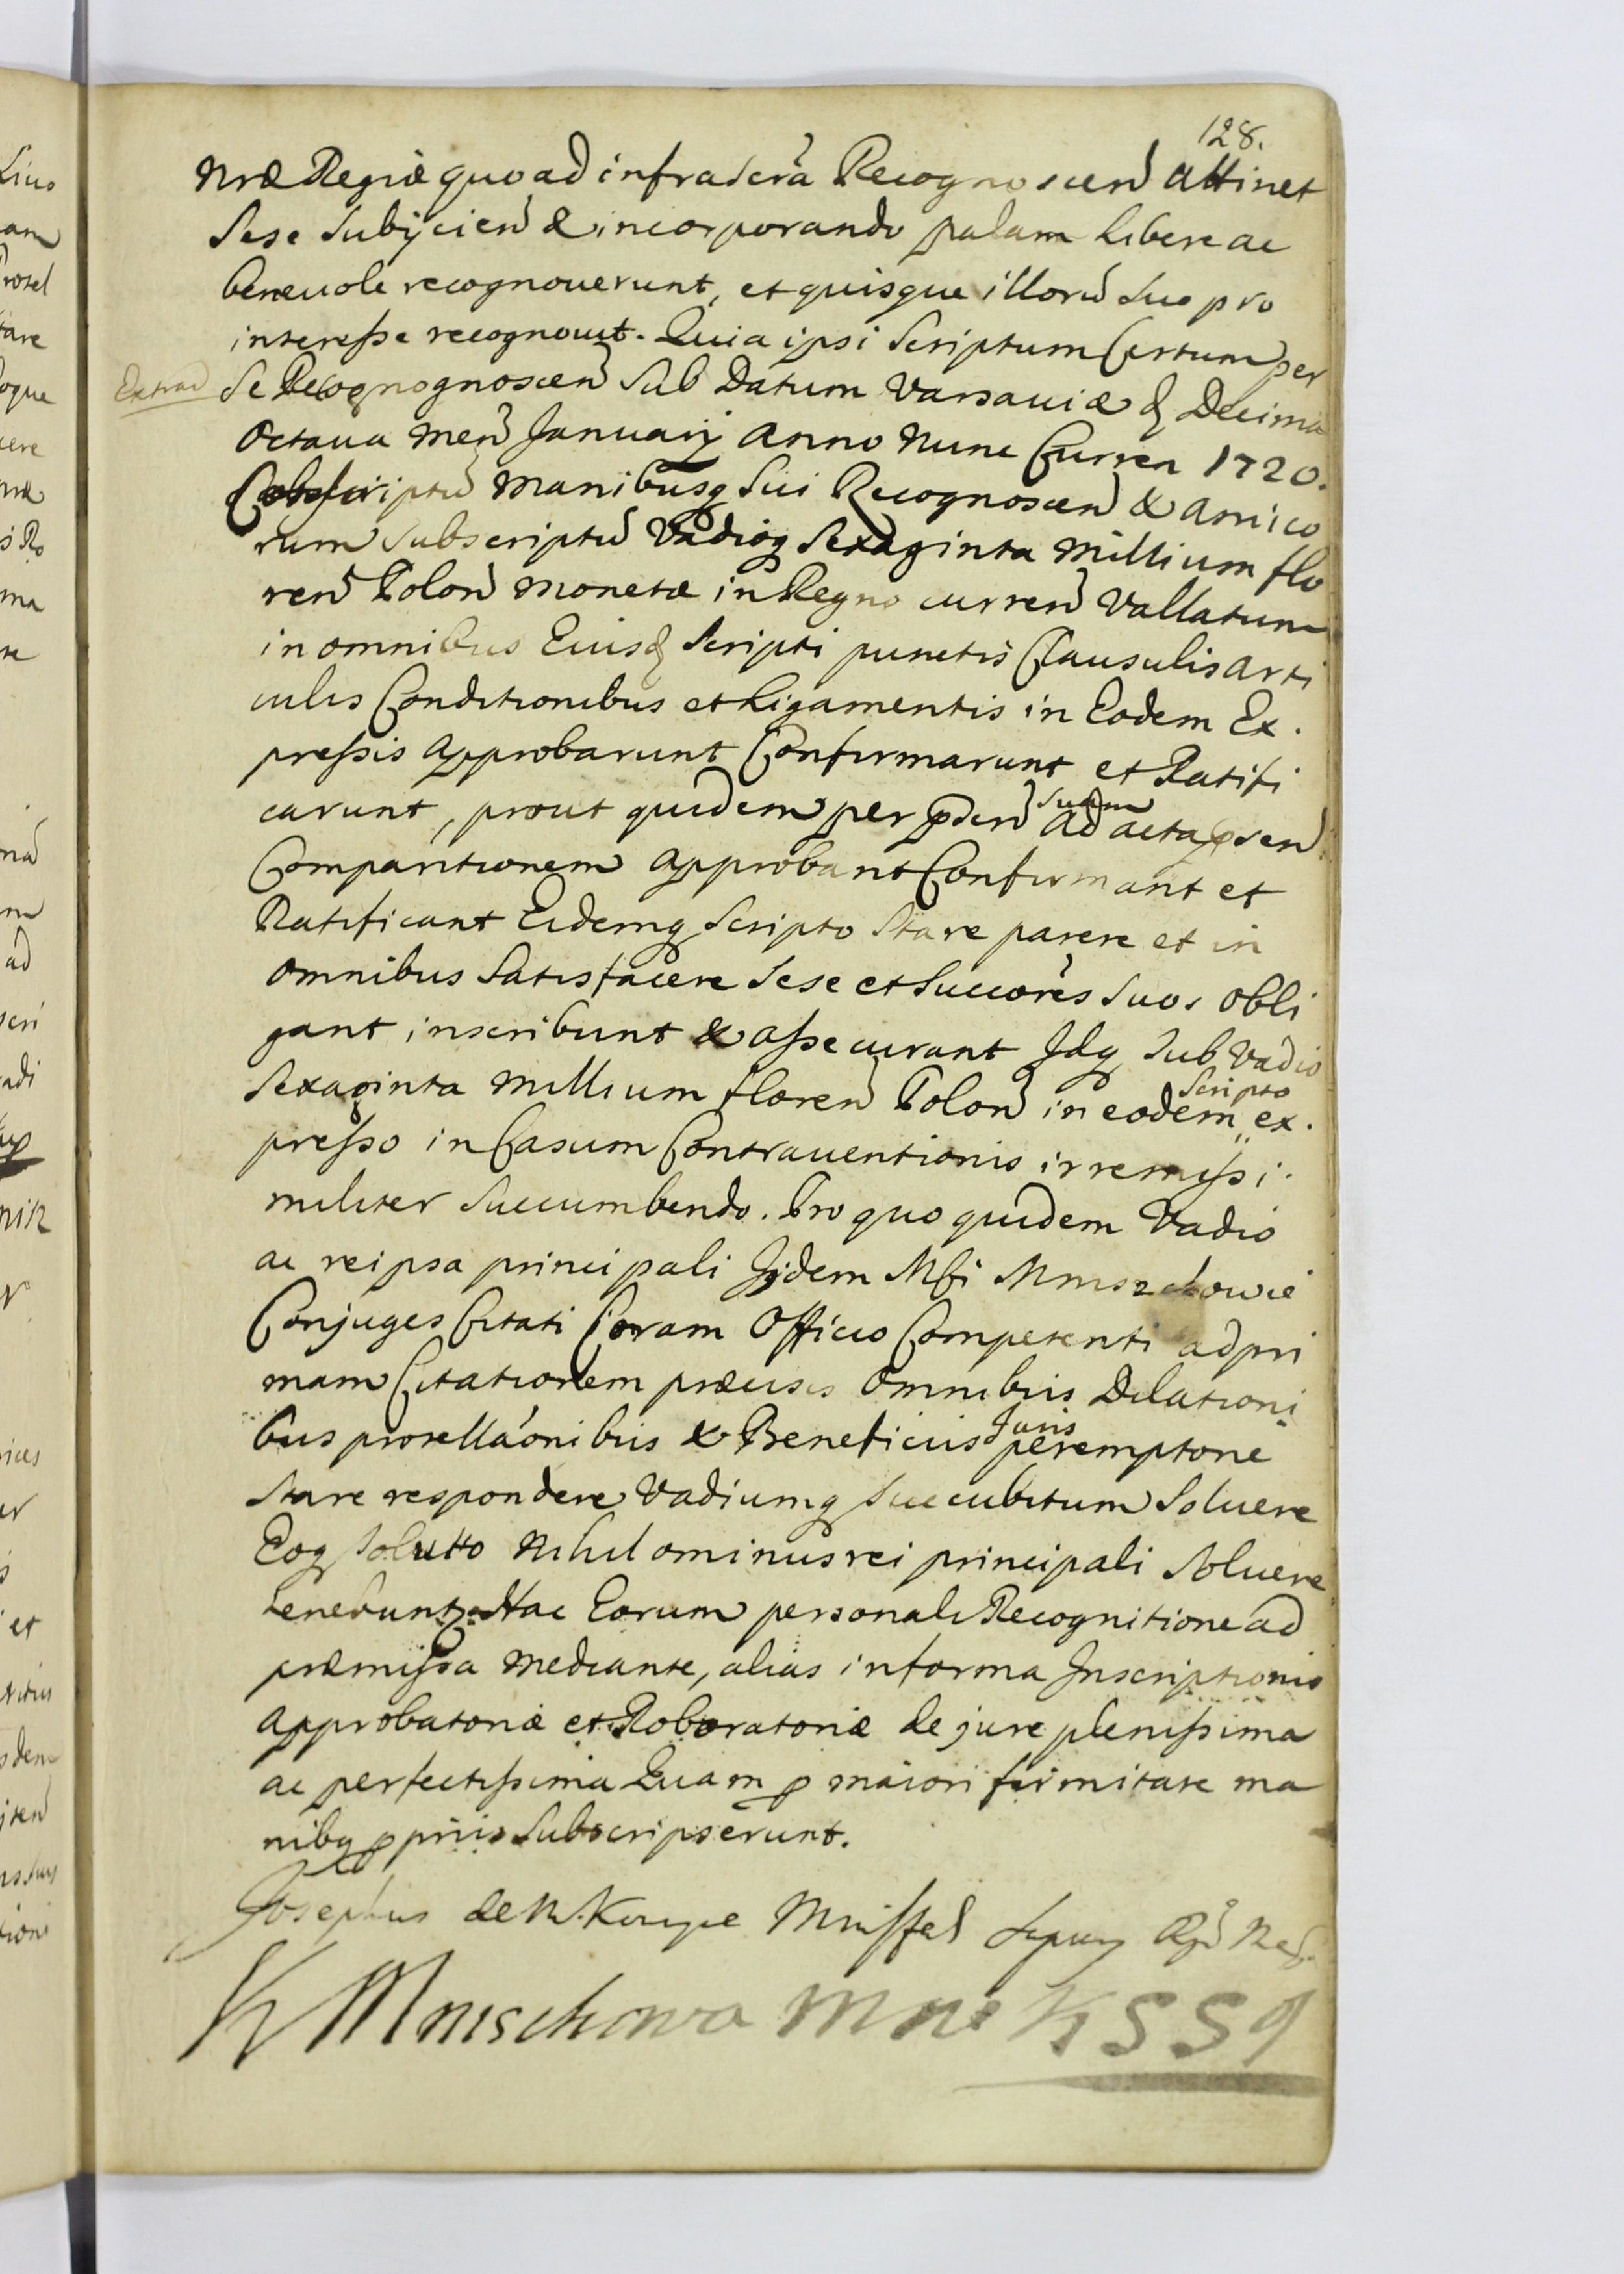 128.
Nræ Regiæ quo ad infrascra Recognoscen attinet
Sese Subijcien & incorporando palam libere ac
beneuole recognouerunt, et quisque illorū suo pro
interesse recognouit. Quia ipsi Scriptum Certum per
Extrad
se Recognognoscen sub Datum Varsauiæ d Decima
Octaua Men Januarij Anno Nunc Curren 1720.
scriptū Manibusq sui Recognoscen & amico
rum subscriptū Vadioq Sexaginta Millium flo
ren Polon Monetæ in Regno curren Vallatum
in omnibus Eiusd Scripti punctis Clausulis arti
culis Conditionibus et Ligamentis in Eodem Ex.
pressis Approbarunt Confirmarunt et Ratifi
carunt, prout quidem per psen suam ad acta psen
Comparitionem approbant Confirmant et
Ratificant Eidemq Scripto Stare parere et in
omnibus Satisfacere Sese et Succores suos obli
gant inscribunt & assecurant Idq sub Vadio
Sexaginta Millium floren Polon in eodem Scripto ex.
presso in Casum Contrauentionis irremissi.
militer Succumbendo. Pro quo quidem Vadio
ac re ipsa principali Ijdem Mfi Mniszchowie
Conjuges Citati Coram Officio Competenti ad pri
mam Citationem præcisis omnibus Dilationi
bus protellaonibus & Beneficiis Juris peremptorie
Stare respondere Vadiumq Succubitum Soluere
Eoq Solutto Nihilominus rei principali Soluere
tenebunt. Hac Eorum personali Recognitione ad
præmissa mediante, alias in forma Inscriptionis
Approbatoriæ et Roboratoriæ de jure plenissima
ac perfectissima Quam p maiori firmitate ma
nibq ppriis Subscripserunt.
Josephus de M. Mnisseh
K Mnischowa M K S S 9